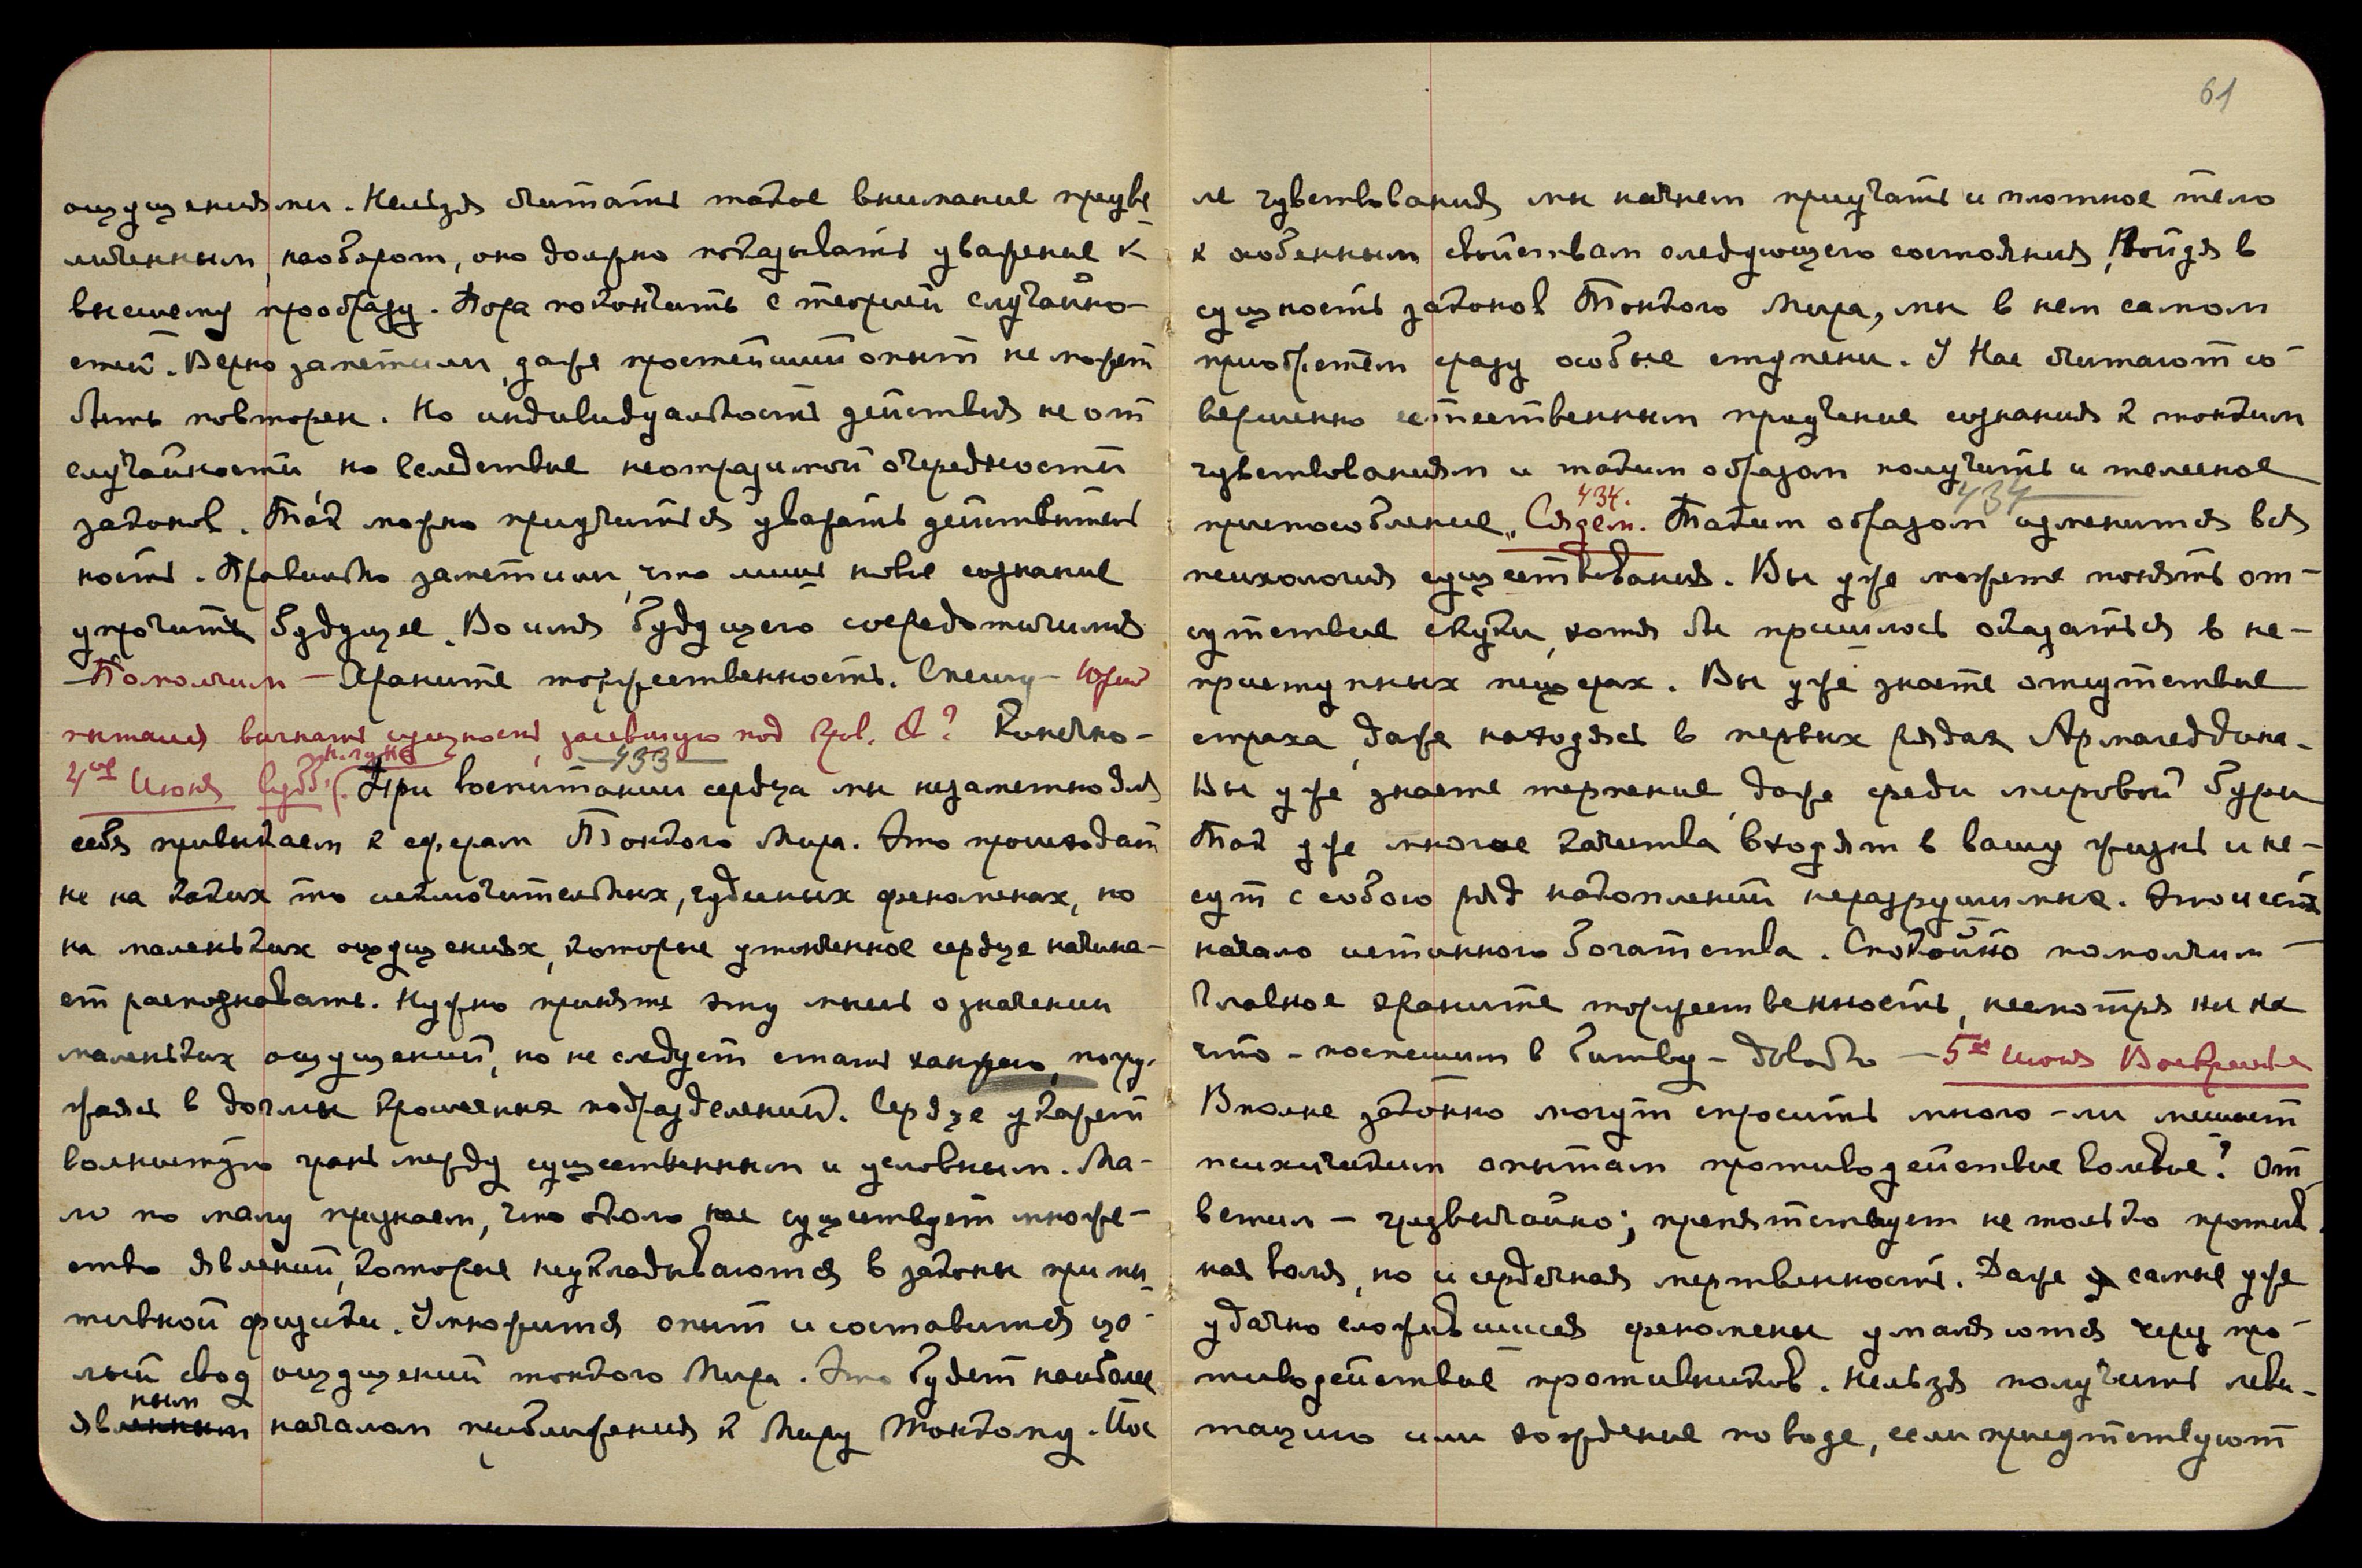 ощущениями. Нельзя считать такое внимание преуве
личенным наоборот, оно должно показывать уважение к
высшему прообразу. Пора покончить с теорией случайно-
стей. Верно заметили, даже простейший опыт не может
быть повторен. Но индивидуальность действия не от
случайности но вследствие неотразимой очередности
законов. Так можно приучиться уважать действитель
ность. Правильно заметили, что лишь новое сознание
упрочить будущее. Во имя будущего сосредоточимся
Помолчим — Храните торжественность. Спешу — Юрий
пытался вычислить сущность, под Конечно-
433
4ое Июня Субб. При воспитании сердца мы незаметно для
себя привыкаем к сферам Тонкого Мира. Это происходит
не на каких то исключительных, чудесных феноменах, но
на маленьких ощущениях, которые утонченное сердце начина-
ет распознавать. Нужно принять эту мысль о значении
маленьких ощущений, но не следует стать ханжею, погру-
жаясь в догмы кромешных подразделений. Сердце укажет
волнистую грань между существенным и условным. Ма-
ло по малу признаем, что около нас существует множе-
ство явлений, которые неукладываются в законы прими
тивной физики. Умножится опыт и составится це-
лый свод ощущений тонкого Мира. Это будет наиболее
ным
явленным началом приближения к Миру Тонкому. Пос
61
ле чувствования мы начнем приучать и плотное тело
к особенным свойствам следующего состояния, Войдя в
сущность законов Тонкого Мира, мы в нем самом
приобретем сразу особые ступени. У Нас считают со-
вершенно естественным приучение сознания к тонким
чувствованиям и таким образом получить и телесное
434. 434
приспособление. Сядем. Таким образом изменится вся
психология существования. Вы уже можете понять от-
сутствие скуки, хотя бы пришлось оказаться в не-
приступных пещерах. Вы уже знаете отсутствие
страха, даже находясь в первых рядах Армагеддона.
Вы уже знаете терпение, даже среди мировой бури
Так уже многое качества входят в вашу жизнь и не-
сут с собою ряд накоплений неразрушимых. Это и есть
начало истинного богатства. Спокойно помолчим —
Главное храните торжественность, несмотря ни на
что — поспешим в битву — довольно — 5ое июня Воскресенье
Вполне законно могут спросить много-ли мешает
психическим опытам противодействие волевое? От
ветим — чрезвычайно; препятствует не только против
ная воля, но и сердечная мертвенность. Даже самые уже
удачно сложившиеся феномены умаляются через про-
тиводействие противников. Нельзя получить леви-
тацию или хождение по воде, если присутствуют